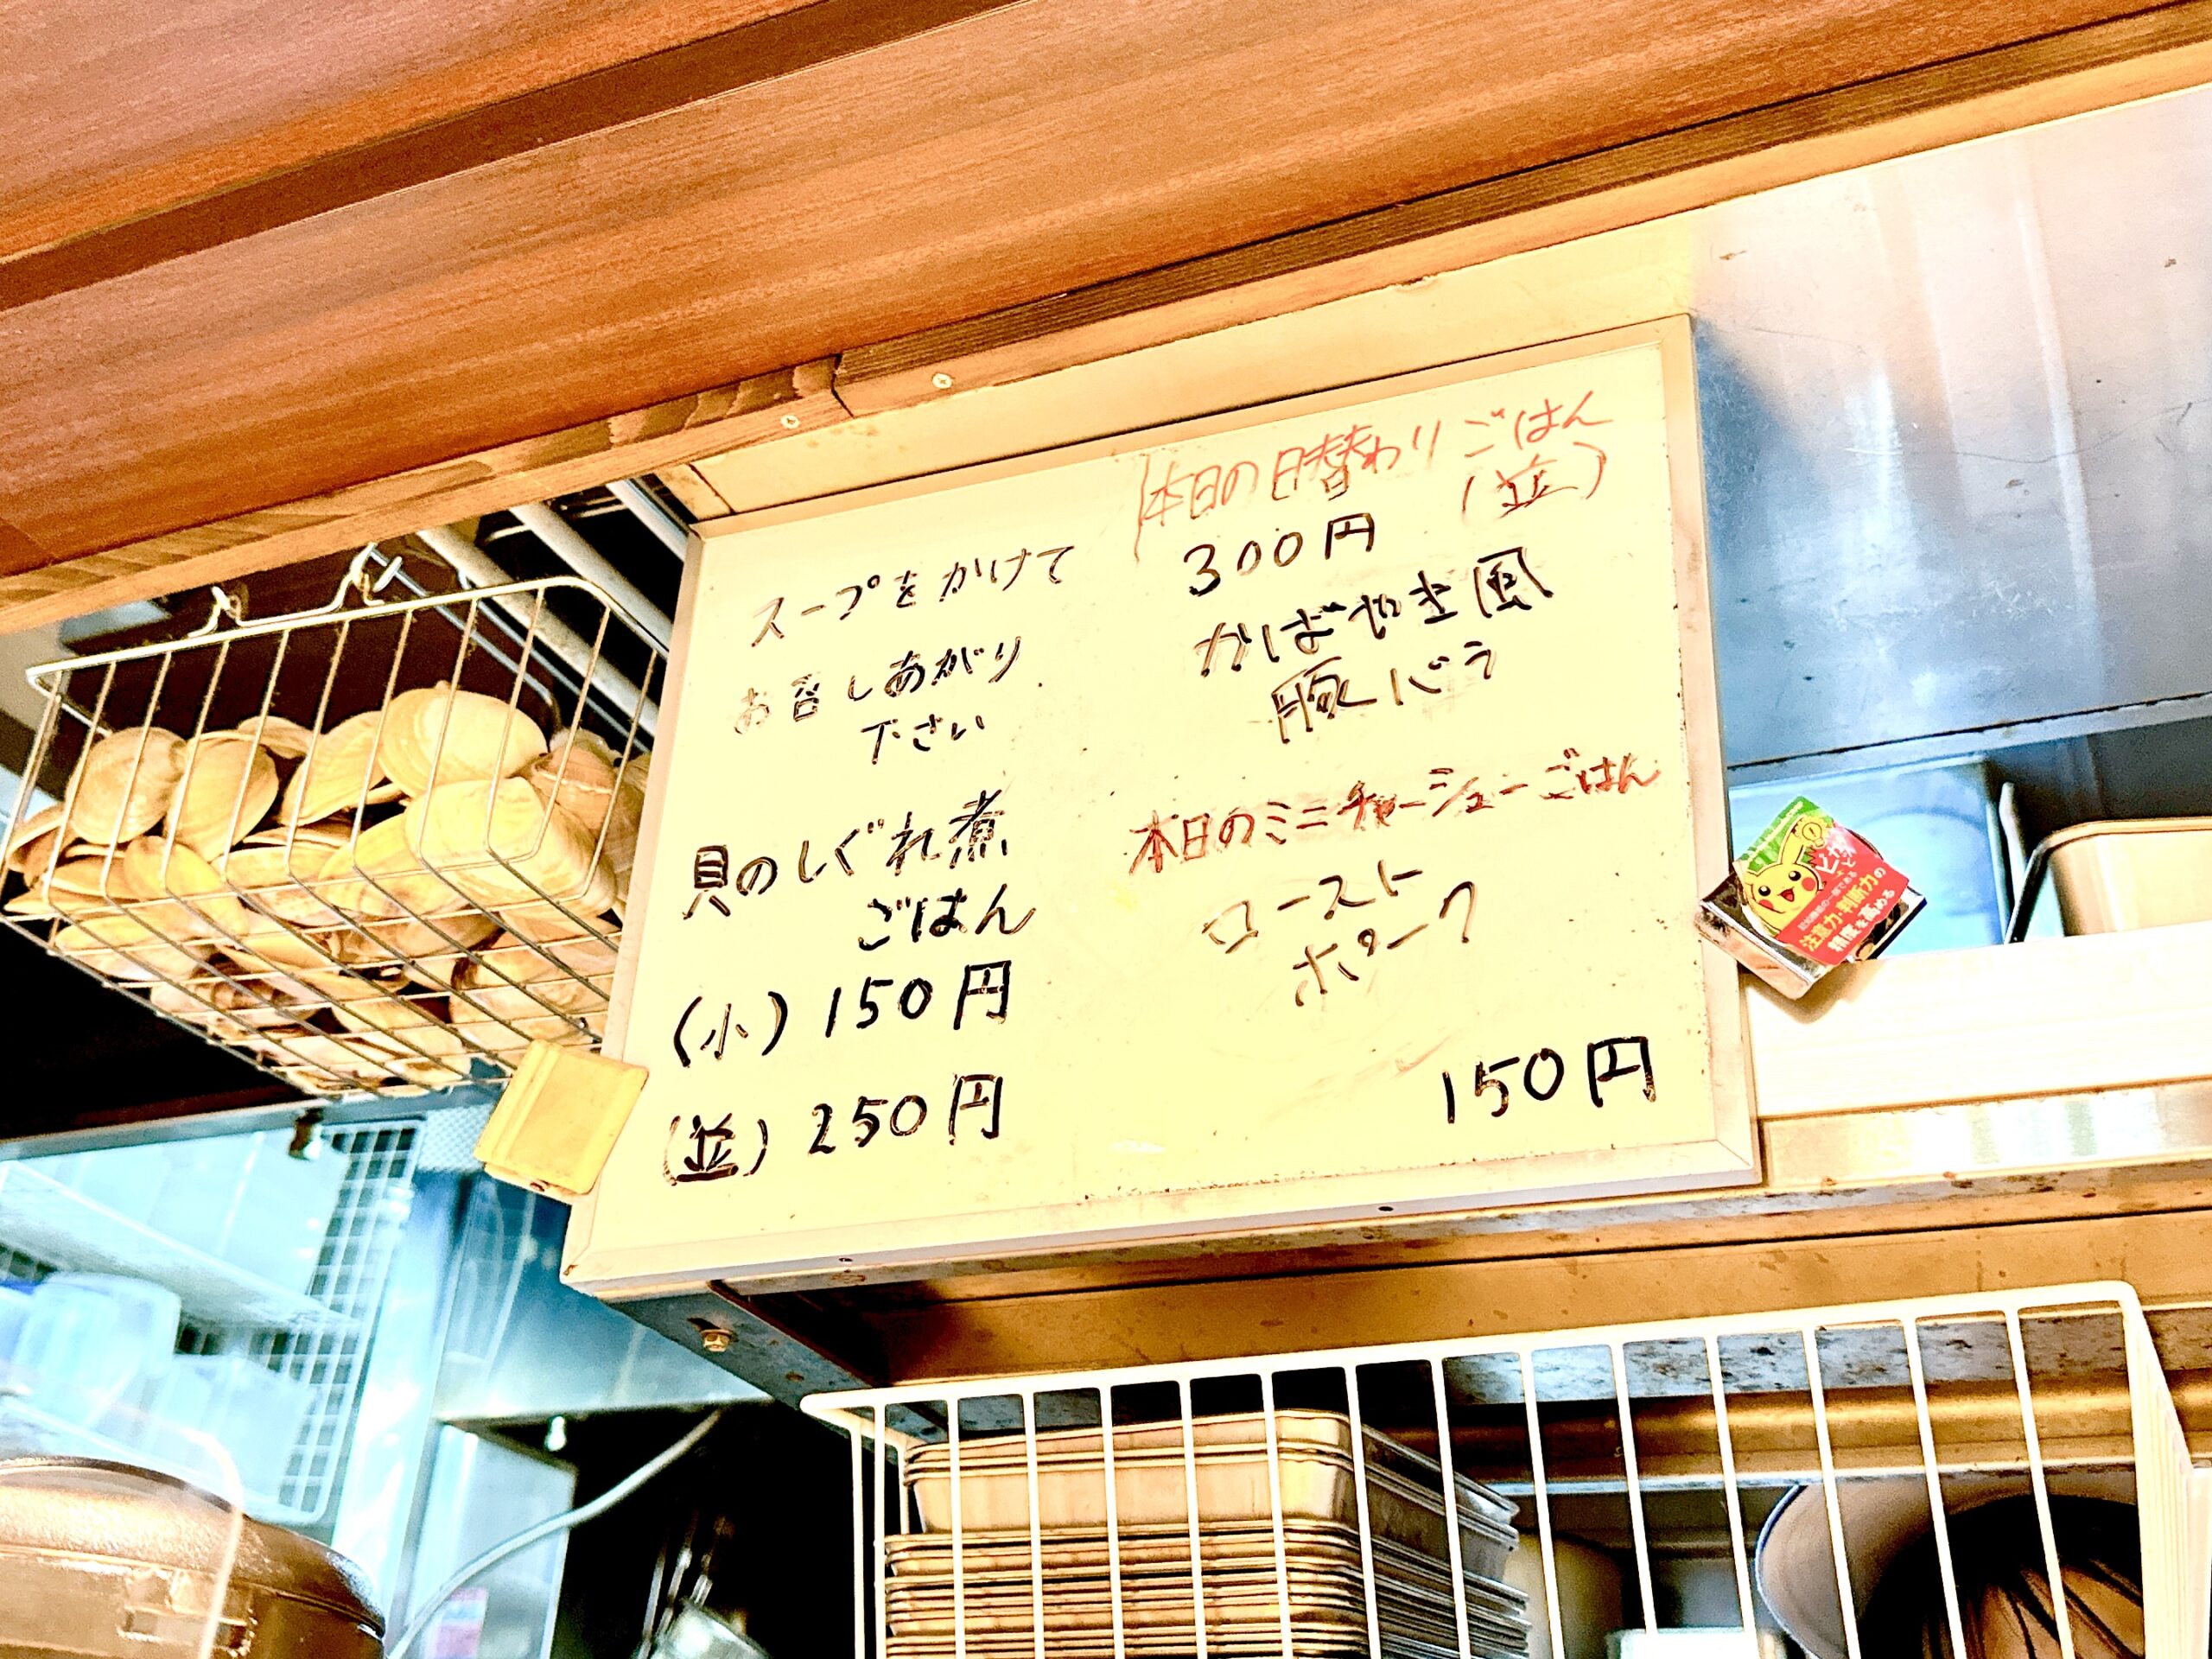 スープをかけて
お召しあがり
下さい
貝のしぐれ煮
ごはん
(小) 150円
(並) 250円
本日の日替わりごはん
(並)
300円
かばやき風
豚バラ
本日のミニチャーシューごはん
ロースト
ポーク
150円
注意力・判断力の
精度を高める